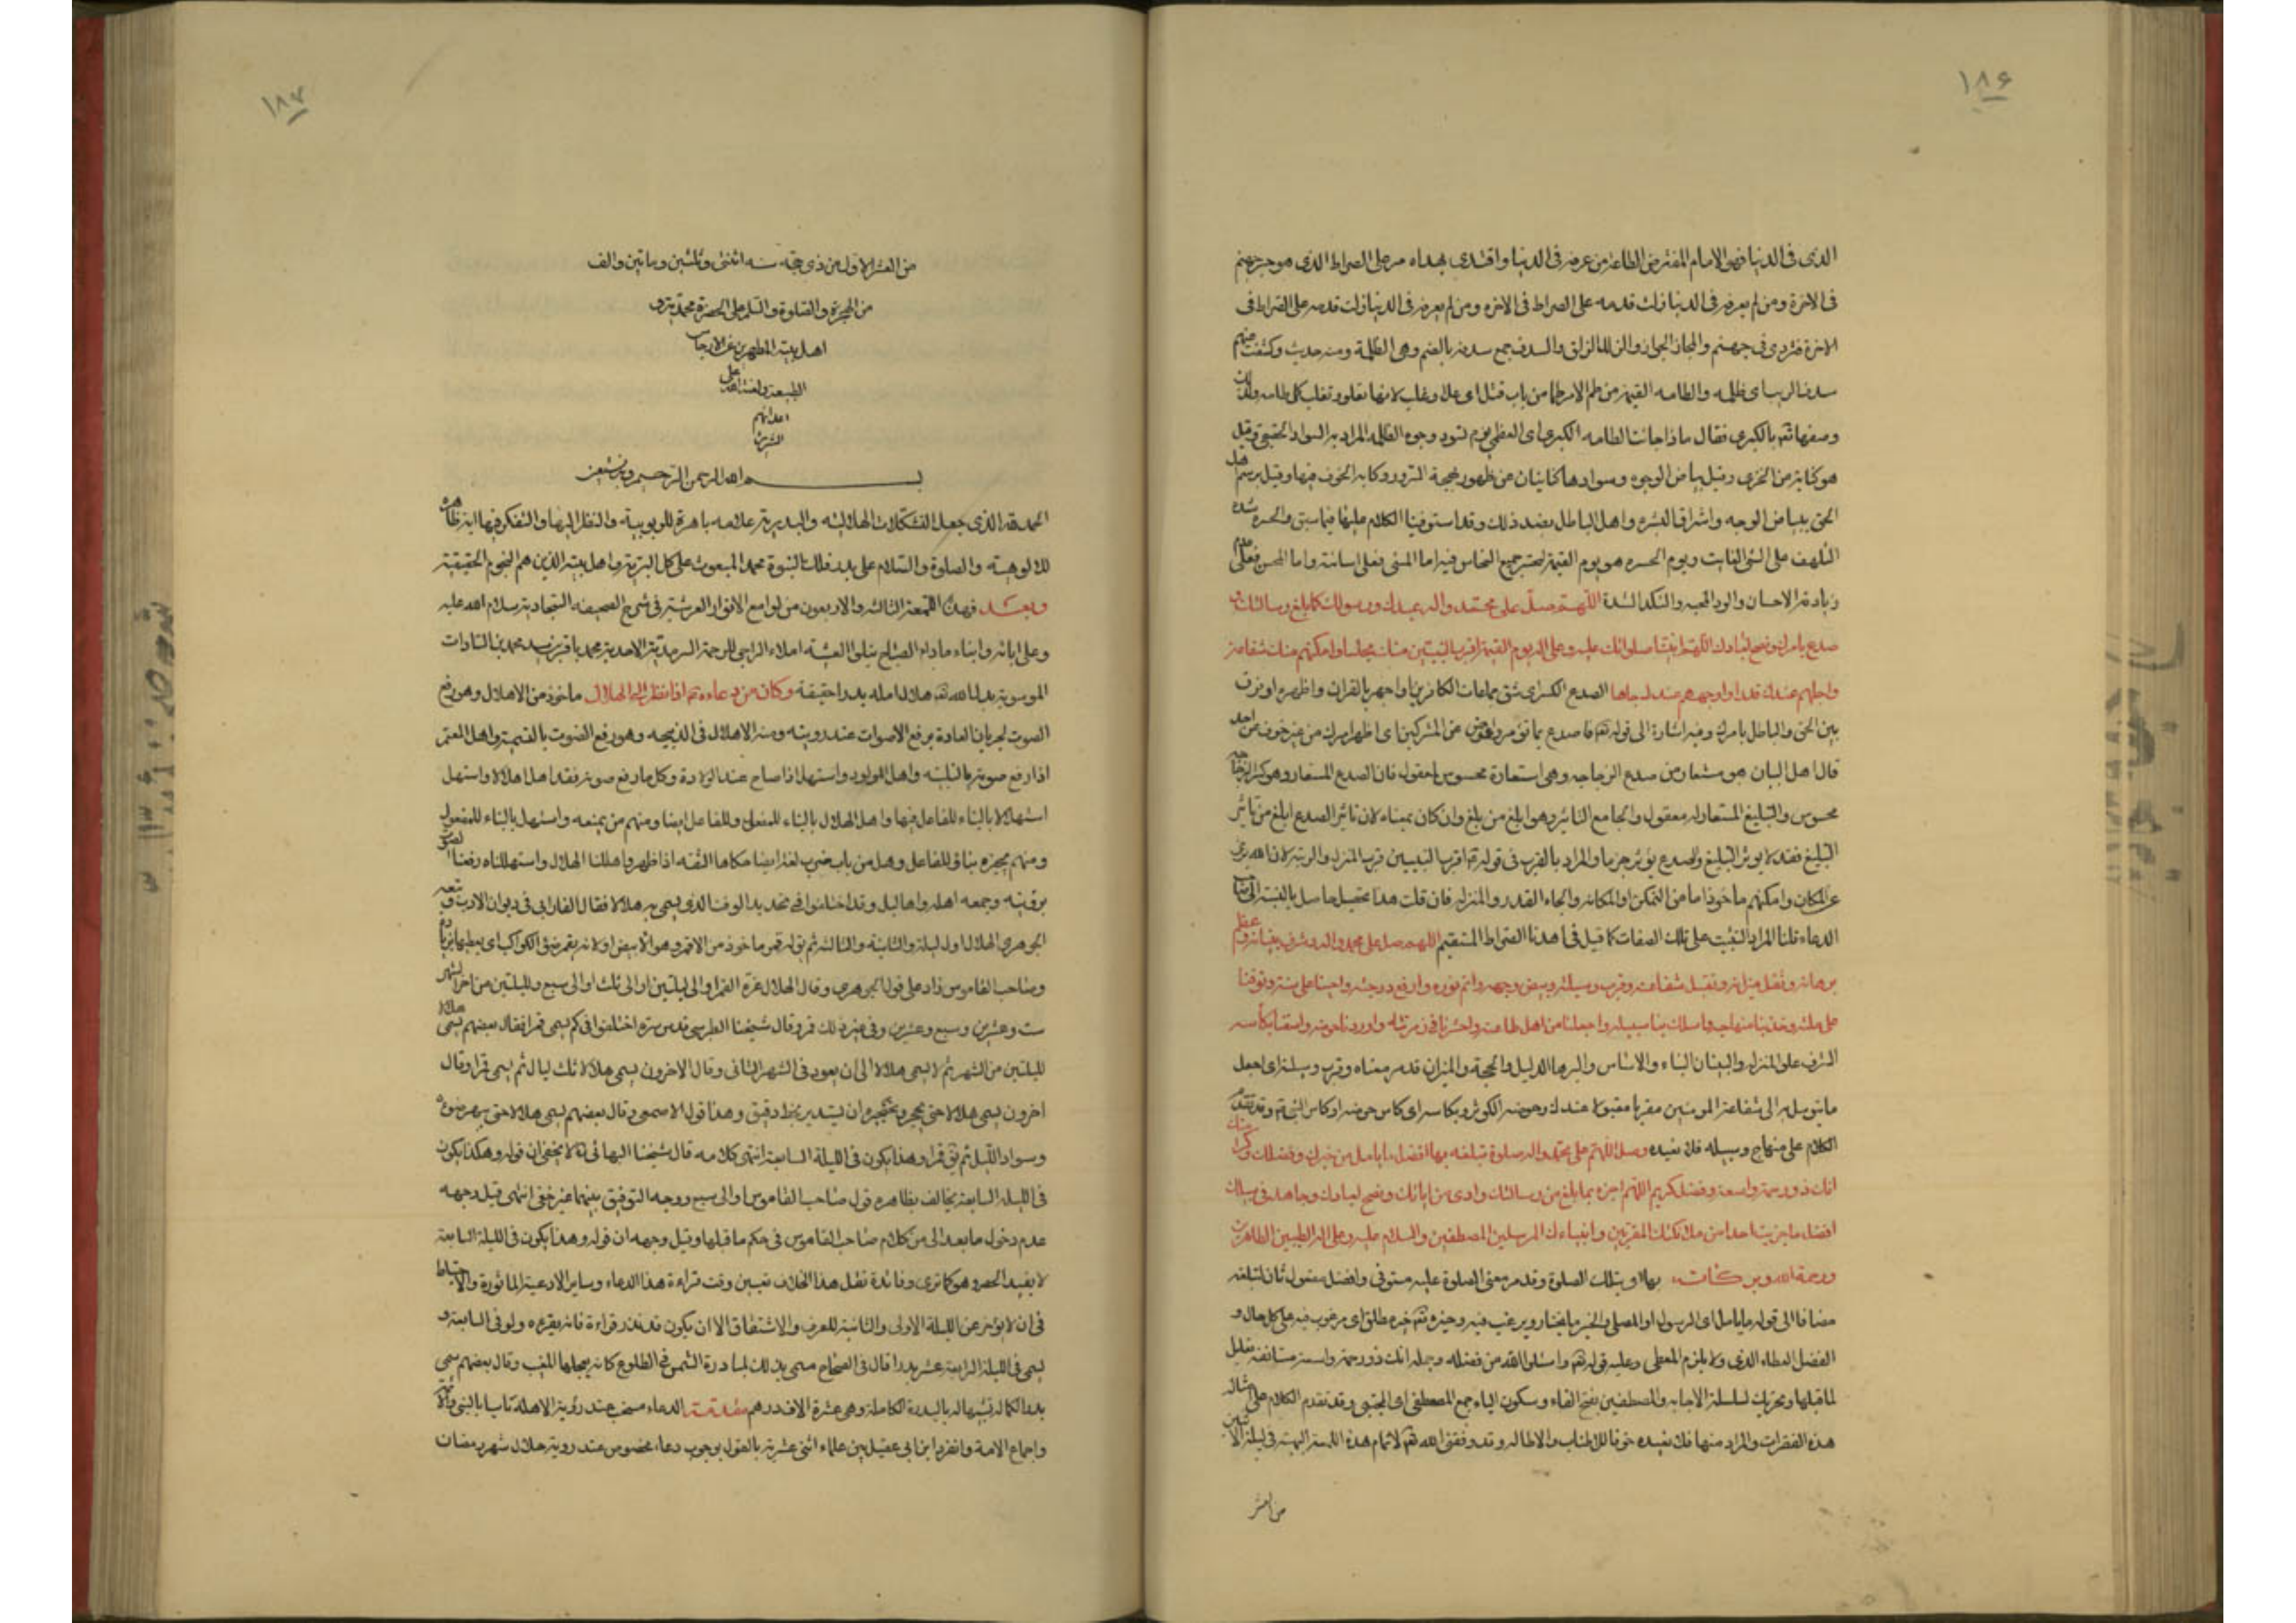 ١٨۶
الذى فى الدنيا فهو الامام المفترض الطاعة من عرفه فى الدنيا واقتدى بهداه مر على الصراط الذى هو جسر جهنم
فى الاخرة ومن لم يعرفه فى الدنيا زلت قدمه على الصراط فى الاخره ومن لم يعرفه فى الدنيا زلت قدمه على الصراط فى
الاخرة فتردى فى جهنم والمجاز الجواز والزلل الزلق والسدف جمع سدفه بالضم وهى الظلمة ومنه حديث وكشفت عنهم
سدف الريب اى ظلمه والطامه القيمة من طم الامر طما من باب قتل اى علا وغلب لانها تعلو وتغلب كل طامه ولذلك
وصفها تعالى بالكبرى فقال فاذا جائت الطامه الكبرى اى العظمى يوم تسود وجوه الظلمه المراد به السواد الحقيقى وقيل
هو كناية من الخزى وقيل بياض الوجوه وسوادها كنايتان عن ظهور بهجة السرور وكابه الخوف فيها وقيل يوسم اهل
الحق ببياض الوجه واشراق البشره واهل الباطل بضد ذلك وقد استوفينا الكلام عليها فيما سبق والحسره شدة
التلهف على الشئ الفايت ويوم الحسره هو يوم القيمة لتحسر جميع الناس فيه اما المسئ فعلى اسائته واما المحسن فعلى عدم
زيادة الاحسان والود المحبه والنكد الشدة اللهم صل على محمد واله عبدك ورسولك كما بلغ رسالتك و
صدع بامرك ونصح لعبادك اللهم اجعل نبينا صلواتك عليه وعلى اله يوم القيمة اقرب النبيين منك مجلسا وامكنهم منك شفاعة
واجلهم عندك قدرا واوجههم عندك جاها الصدع الكسر اى شق جماعات الكافرين او اجهر بالقران واظهره او فرق
بين الحق والباطل بامرك وفيه اشارة الى قوله تعالى فاصدع بما تؤمر واعرض عن المشركين اى اظهر امرك من غير خوف من احد
قال اهل البيان هو مستعار من صدع الزجاجه وهى استعارة محسوس لمعقول فان الصدع المستعار وهو كسر الزجاجه
محسوس والتبليغ المستعار له معقول والجامع التاثير وهو ابلغ من بلغ وان كان بمعناه لان تاثير الصدع ابلغ من تاثير
التبليغ فقد لا يوثر التبليغ والصدع يؤثر جزما والمراد بالقرب فى قوله اقرب النبيين قرب المنزله والرتبه لان الله برئ
عن المكان وامكنهم ماخوذ اما من التمكن او المكانه والجاه القدر والمنزله فان قلت هذا تحصيل حاصل بالنسبة الى
الدعاء قلنا المراد التثبت على تلك الصفات كما قيل فى اهدنا الصراط المستقيم اللهم صل على محمد واله وشرف بنيانه وعظم
برهانه وثقل ميزانه وتقبل شفاعته وقرب وسيلته وبيض وجهه واتم نوره وارفع درجته واحينا على سنته وتوفنا
على ملته وخذ بنا منهاجه واسلك بنا سبيله واجعلنا من اهل طاعته واحشرنا فى زمرته واوردنا حوضه واسقنا بكأسه
الشرف علو المنزله والبنيان البناء والاساس والبرهان الدليل والحجة والميزان قد مر معناه وقرب وسيلته اى اجعل
ما يتوسل به الى شفاعة المومنين مقربا مقبولا عندك وحوضه الكوثر وبكاسه اى كاس حوضه او كاس النبى وقد تقدم
الكلام على منهاج وسبيله فلا نعيده وصل اللهم على محمد واله صلوة تبلغه بها افضل ما يامل من خيرك وفضلك وكرامتك
انك ذو رحمة واسعة وفضل كريم اللهم اجزه بما بلغ من رسالتك وادى من اياتك ونصح لعبادك وجاهد فى سبيلك
افضل ما جزيت احدا من ملائكتك المقربين وانبياءك المرسلين المصطفين والسلام عليه وعلى اله الطيبين الطاهرين
ورحمة الله وبركاته بها اى بتلك الصلوة وقد مر معنى الصلوة عليه مستوفى وافضل مفعول ثان لتبلغه
مضافا الى قوله ما يامل اى الرسول او المصلى والخير ما يختار ويرغب فيه وخيره تعالى خير مطلق اى مرغوب فيه على كل حال و
الفضل العطاء الذى ولا يلزم المعطى وعليه قوله تعالى واسئلوا الله من فضله وجمله انك ذو رحمة واسعة مستانفه تعليل
لما قبلها وتحريك لسلسلة الاجابه والمصطفين بفتح الفاء وسكون الياء جمع المصطفى اى المجتبى وقد تقدم الكلام على امثاله
هذه الفقرات والمراد منها فلا نعيده خوفا للاطناب والاطاله وقد وفقنى الله تعالى لاتمام هذه اللمعة البهية فى ليلة الاثنين
من العشر
١٨٧
من العشر الاول من ذى حجة سنه اثنتى وثلثين وماتين والف
من الهجرة والصلوة والسلم على الحضرة محمد وترى
اهل بيته المطهرين عن الارجاس
الطبيعة ولعنة الله على
اعدائهم
بسم الله الرحمن الرحيم وبه نستعين
الحمد لله الذى جعل التشكلات الهلاليه والبدرية علامه باهرة للربوبية والنظر اليها والتفكر فيها اية ظاهرة
للالوهية والصلوة والسلام على بدر فلك النبوة محمد المبعوث على كل البرية واهل بيته الذين هم النجوم الحقيقية
وبعد فهذه اللمعة الثالثه والاربعون من لوامع الانوار العرشية فى شرح الصحيفه السجادية سلام الله عليه
وعلى ابائه وابناءه مادام الصباح يتلوا العشية املاء الراجى للرحمة السرمدية الاحدية محمد باقر بن سيد محمد من السادات
الموسوية بدل الله تعالى هلال امله بدرا حقيقة وكان من دعاءه ع اذا نظر الى الهلال ماخوذ من الاهلال وهو رفع
الصوت لجريان العادة برفع الاصوات عند رويته ومنه الاهلال فى الذبيحه وهو رفع الصوت بالتسمية واهل المعتمر
اذا رفع صوته بالتلبية واهل المولود واستهل اذا صاح عند الولادة وكل ما رفع صوته فقد اهل اهلالا واستهل
استهلالا بالبناء للفاعل فيها واهل الهلال بالبناء للمفعول وللفاعل ايضا ومنهم من يمنعه واستهل بالبناء للمفعول
ومنهم يجيزه بنائه للفاعل وهل من باب ضرب لغة ايضا حكاها الثقه اذا ظهر واهللنا الهلال واستهللناه رفعنا الصوت
برؤيته وجمعه اهله واهاليل وقد اختلفوا فى تحديد الوقت الذى يسمى به هلالا فقال الفارابى فى ديوان الادب وتبعه
الجوهرى الهلال اول ليلة والثانية والثالثه ثم يق له قمر ماخوذ من الاقمر وهو الابيض او لانه يقمر ضوء الكواكب اى يغلبها بزيادة
وصاحب القاموس زاد على قول الجوهرى وقال الهلال غرة القمر او الى ليلتين او الى ثلث او الى سبع ولليلتين من اخر الشهر
ست وعشرين وسبع وعشرين وفى غير ذلك قمر وقال شيخنا الطبرسى قدس سره اختلفوا فى كم يسمى قمرا فقال بعضهم يسمى هلالا
لليلتين من الشهر ثم لا يسمى هلالا الى ان يعود فى الشهر الثانى وقال الاخرون يسمى هلالا ثلث ليال ثم يسمى قمرا وقال
اخرون يسمى هلالا حتى يحجر وتحجيره ان يستدير بخط دقيق وهذا قول الاصمعى وقال بعضهم يسمى هلالا حتى يبهر ضوءه
وسواد الليل ثم يق قمرا وهذا يكون فى الليلة السابعة انتهى كلامه قال شيخنا البهائى لا يخفى ان قوله وهكذا يكون
فى الليلة السابعة يخالف بظاهره قول صاحب القاموس او الى سبع ووجه التوفيق بينهما غير خفى انتهى قيل وجهه
عدم دخول ما بعد الى من كلام صاحب القاموس فى حكم ما قبلها وقيل وجهه ان قوله وهذا يكون فى الليلة السابعة
لا يفيد الحصر وهو كما ترى وفائدة نقل هذا الخلاف تعيين وقت قراءة هذا الدعاء وساير الادعية الماثورة والاحتياط
فى ان لا يؤخر عن الليلة الاولى والثانية للعرف والاشتقاق الا ان يكون تعذر قراءة فانه يقرءه ولو فى السابعة و
يسمى فى الليلة الرابعة عشر بدرا قال فى الصحاح سمى بذلك لمبادرة الشمس فى الطلوع كانه يعجلها المغيب وقال بعضهم سمى
بدرا لكماله تشبيها له بالبدرة الكاملة وهى عشرة الاف درهم مقدمة الدعاء مستحب عند رؤية الاهلة تاسيا بالنبى والائمة
واجماع الامة وانفرد ابن ابى عقيل من علماء اثنى عشرية بالقول بوجوب دعاء مخصوص عند روية هلال شهر رمضان